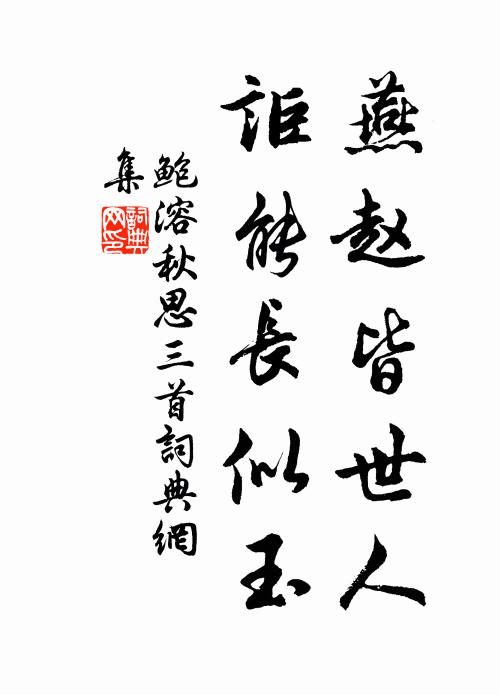 燕赵皆世人
詎能長似玉
鲍溶秋思三首詞典網
集
詞典
网印